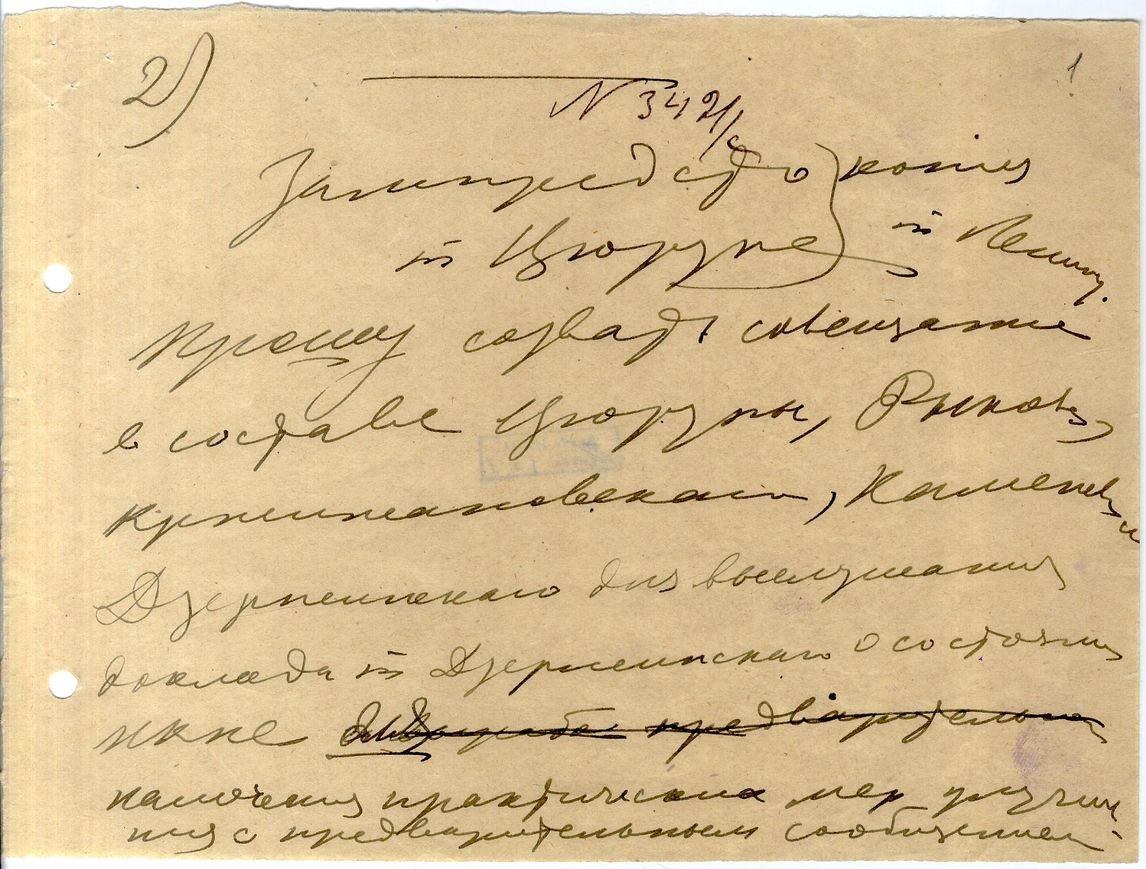 2)
1
N 342/с
Зампредсто
т Цюрупе
копия
т Ленину.
Прошу созвать совещание
в составе Цюрупы, Рыкова,
Кржижановскаго, Каменева и
Дзержинскаго для выслушания
доклада т Дзержинскаго о состоянии
НКПС предварительно
намечения практических мер улучше
ния с предварительным сообщением